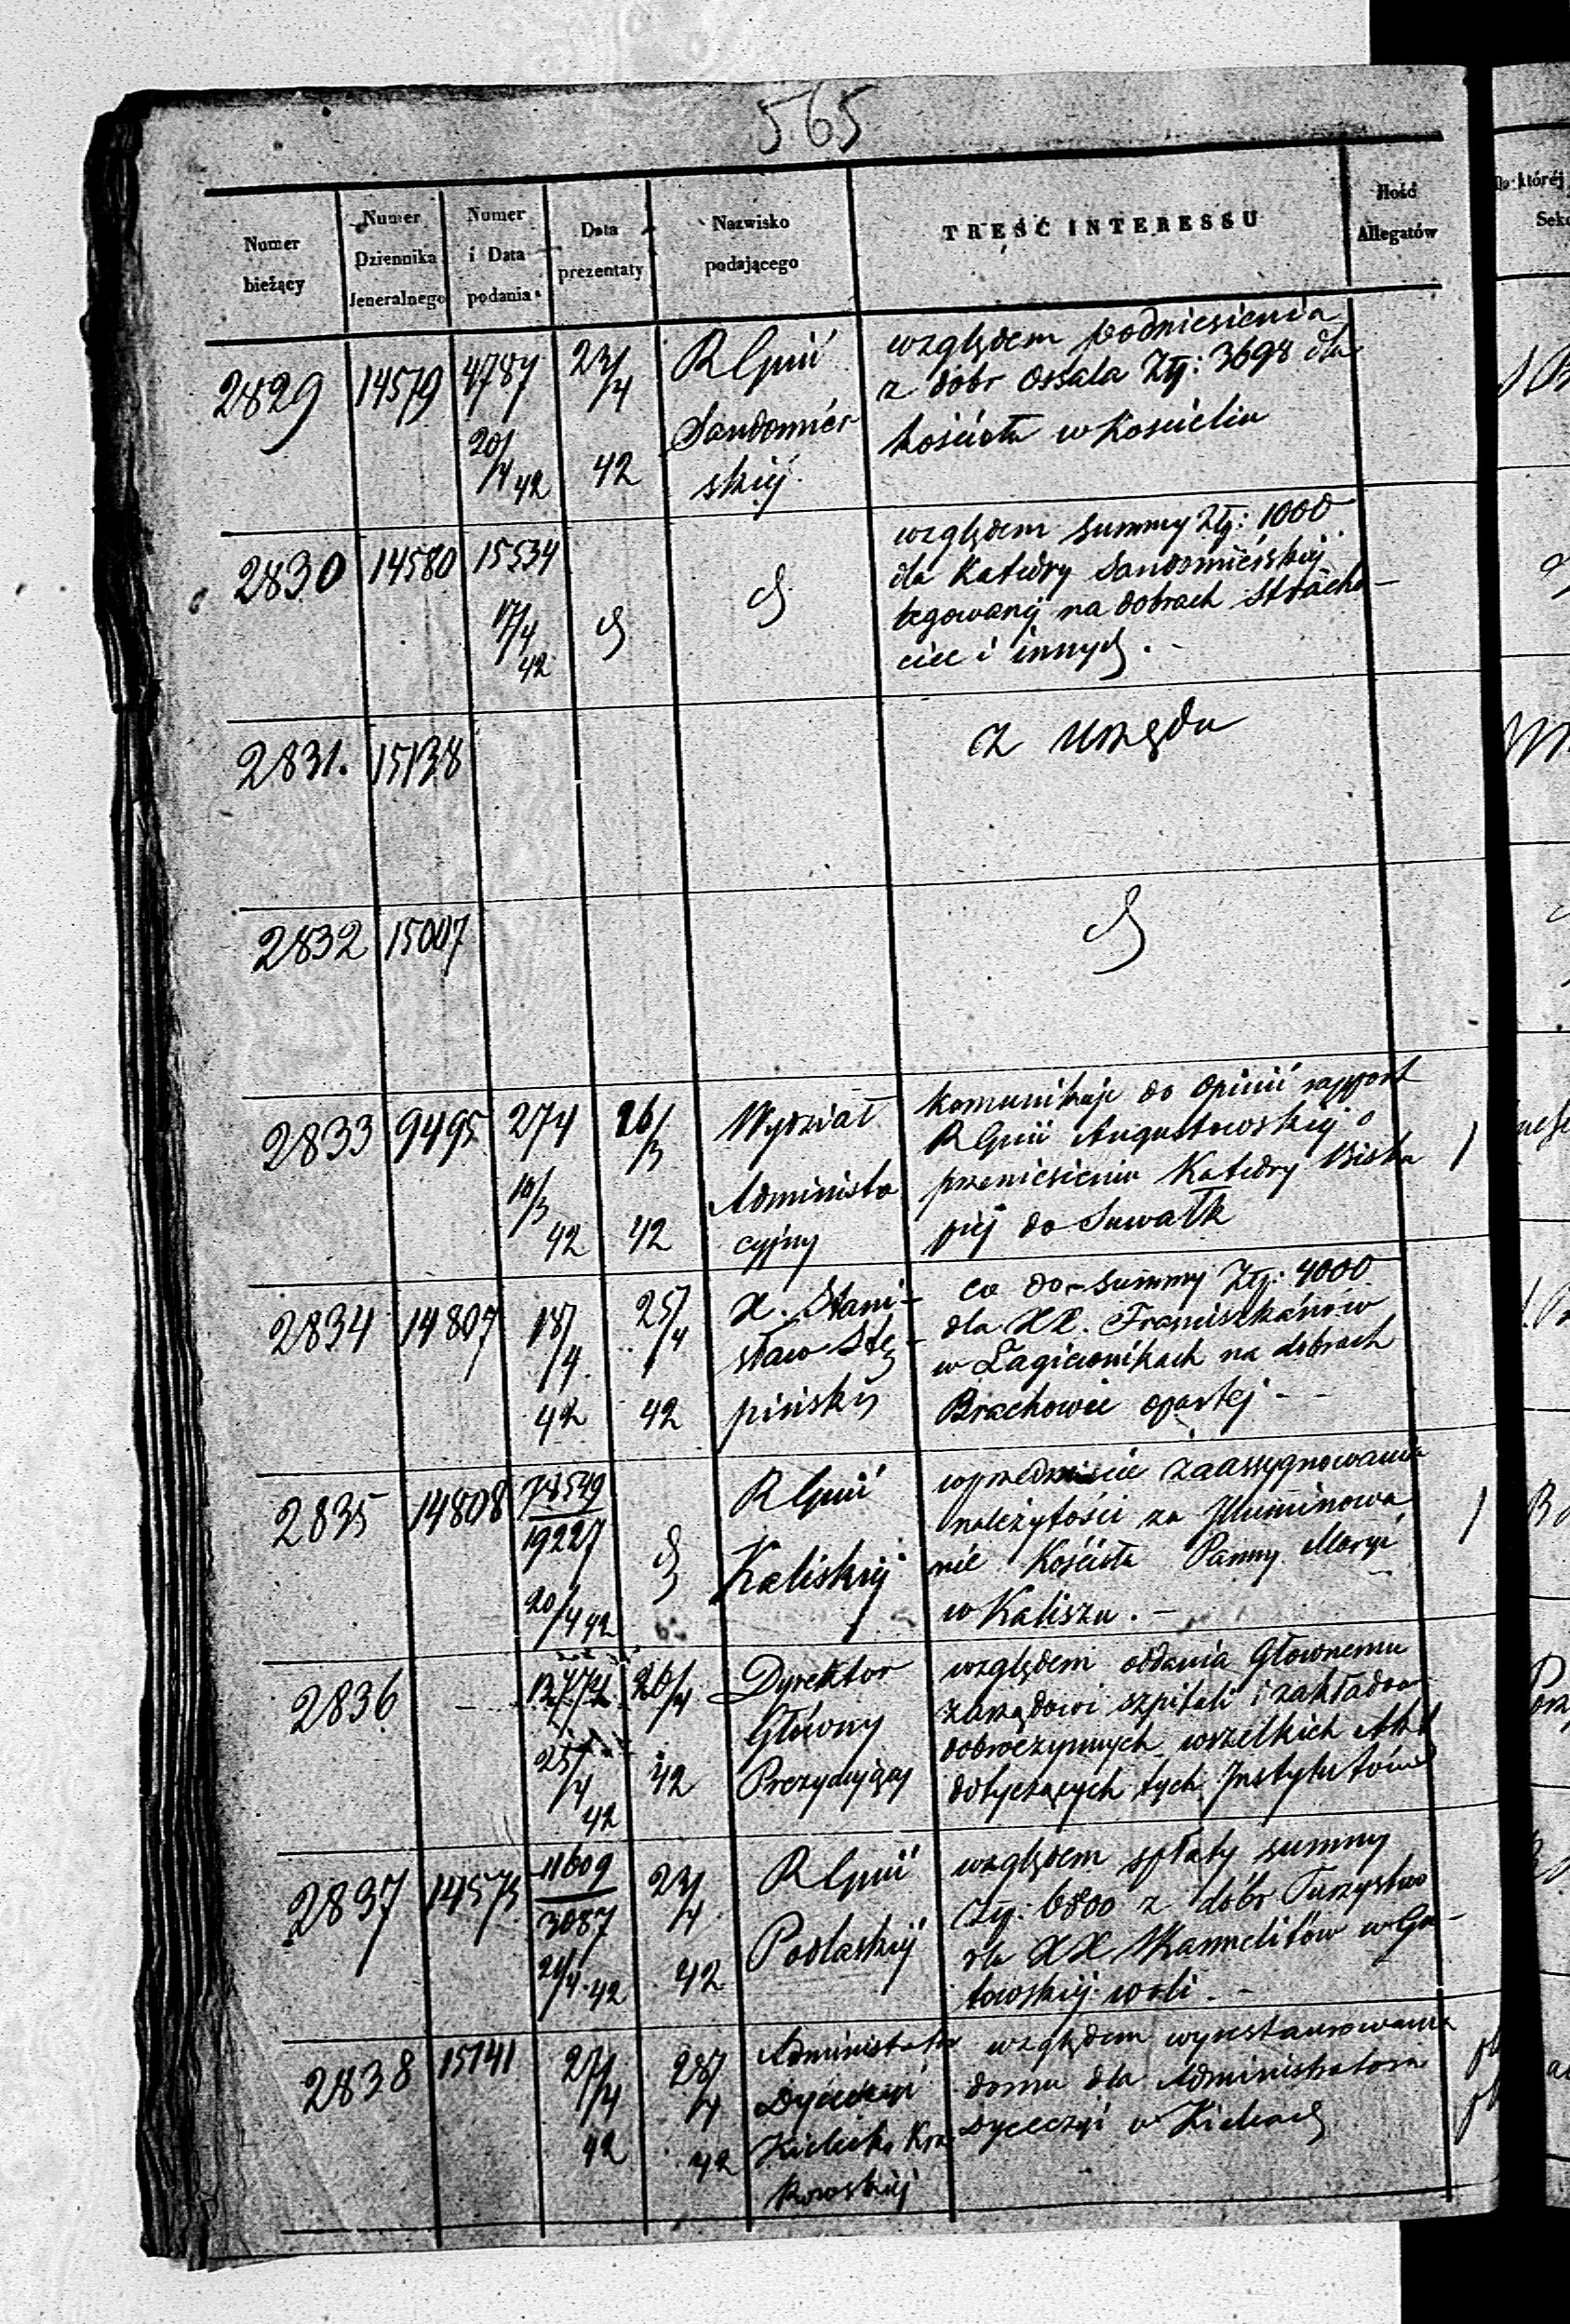 565
Numer bieżący
Numer Dziennika Jeneralnego
Numer i Data podania
Data prezentaty
Nazwisko podającego
TREŚĆ INTERESSU
Ilość Allegatów
2829 14579 4787 20/4 42 23/4 42
R Gnii
Sandomiér
skiéj
względem podniesienia
z dobr Ossala Złp: 3698 dla
kościoła w Kościelcu
2830 14580 15534 17/4 42
względem summy Złp: 1000
dla Katedry Sandomierskiéj
legowanéj na dobrach Stracho
cice i innych.
2831. 15138
z urzędu
2832 15007
2833 9495 274 10/3 42 26/3 42
Wydział
Administra
cyjny
komunikuje do Opinii rapport
R Gnii Augustowskiéj o
przeniesieniu Katedry Bisku
piéj do Suwałk
2834 14807 18/4 42 25/4 42
X. Stani-
sław Stę-
piński
co do summy Złp: 4000
dla XX. Franciszkanów
w Łagiewnikach na dobrach
Brachowice opartej
2835 14808 78549 19227 20/4 42
R Gnii
Kaliskiéj
w przedmiocie zaassygnowania
należytości za Illuminowa
nie Kościoła Panny Maryi
w Kaliszu.
2836 25/4 42 26/4 42
Dyrektor
Główny
Prezydujący
względem oddania Głownemu
zarządowi szpitali i zakładów
dobroczynnych wszelkich Akt
dotyczących tych Instytutów
2837 14575 11609 3087 21/4 42 23/4 42
R Gnii
Podlaskiéj
względem spłaty summy
Złp: 6800 z dóbr Turzystwo
dla XX Karmelitów w Gu-
łowskiéj woli.
2838 15141 27/4 42 28/4 42
Administrator
Dyecezyi
Kielecko Kra
kowskiéj
względem wyrestaurowania
domu dla Administratora
Dyecezyi w Kielcach
Do któréj